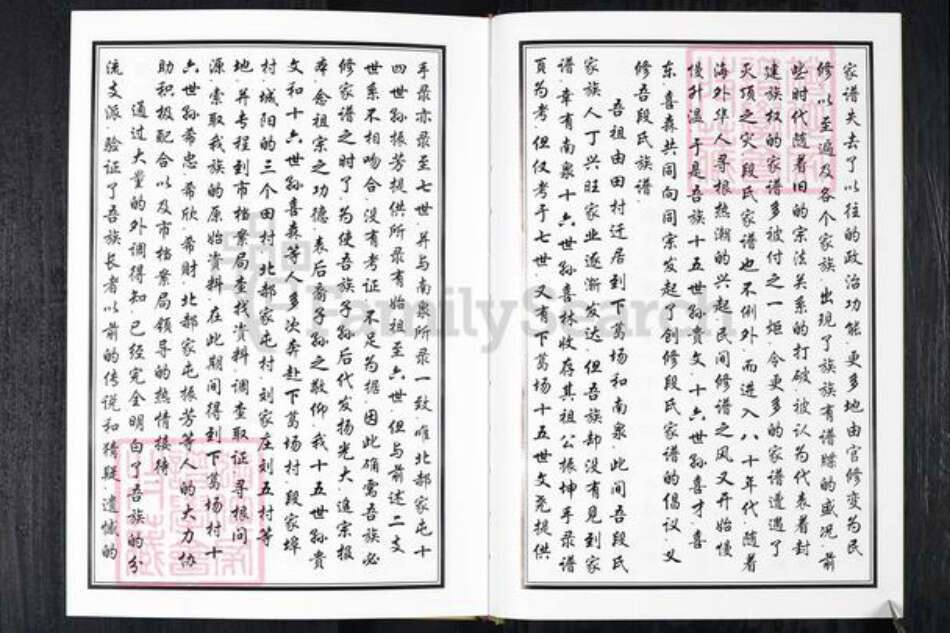 家谱失去了以往的政治功能.更多地由官修变为民
修.以至遍及各个家族.出现了族族有谱牒的盛况.前
些时代随着旧的宗法关系的打破.被认为代表着封
建族权的家谱多被付之一炬.令更多的家谱遭遇了
灭顶之灾.段氏家谱也不例外.而进入八十年代.随着
海外华人寻根热潮的兴起.民间修谱之风又开始慢
慢升温.于是吾族十五世孙贵文.十六世孙喜才.喜
东.喜森共同向同宗发起了创修段氏家谱的倡议.义
修吾段氏族谱.
吾祖由田村迁居到下葛场和南泉.此间吾段氏
家族人丁兴旺.家业逐渐发达.但吾族却没有见到家
谱.幸有南泉十六世孙喜林收存其祖公振坤手录谱
页为考.但仅考于七世.又有下葛场十五世文尧提供
手录亦录至七世.并与南泉所录一致.唯北部家屯十
四世孙振芳提供所录有始祖至六世.但与前述二支
世系不相吻合.没有考证.不足为据.因此确需吾族必
修家谱之时了.为使吾族子孙后代发扬光大.追宗报
本.念祖宗之功德.表后裔子孙之敬仰.我十五世孙贵
文和十六世孙喜森等人多次奔赴下葛场村.段家埠
村.城阳的三个田村.北部家屯村.刘家庄刘五村等
地.并专程到市档案局查找资料.调查取证.寻根问
源.索取我族的原始资料.在此期间得到下葛场村十
六世孙希忠.希欣.希财.北部家屯振芳等人的大力协
助积极配合以及市档案局领导的热情接待.
通过大量的外调得知.已经完全明白了吾族的分
流支派.验证了吾族长者以前的传说和猜疑.遗憾的
FamilySearch